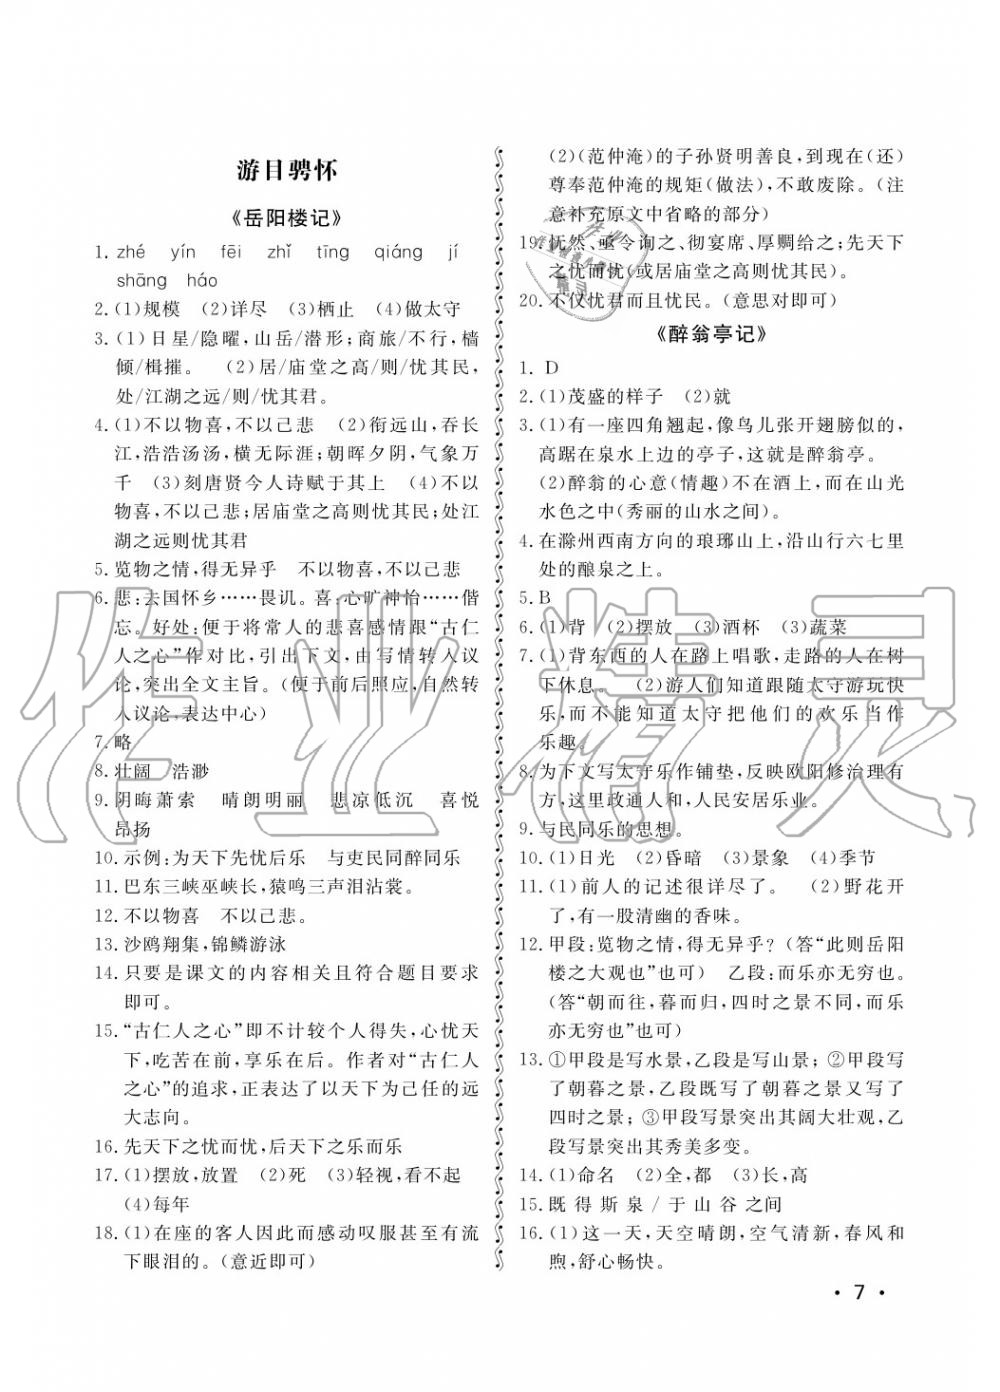 游目骋怀
《岳阳楼记》
1. zhé yín fēi zhǐ tīng qiáng jí
shāng háo
2. (1)规模 (2)详尽 (3)栖止 (4)做太守
3. (1)日星/隐曜,山岳/潜形;商旅/不行,樯
倾/楫摧。 (2)居/庙堂之高/则/忧其民,
处/江湖之远/则/忧其君。
4. (1)不以物喜,不以己悲 (2)衔远山,吞长
江,浩浩汤汤,横无际涯;朝晖夕阴,气象万
千 (3)刻唐贤今人诗赋于其上 (4)不以
物喜,不以己悲;居庙堂之高则忧其民;处江
湖之远则忧其君
5. 览物之情,得无异乎 不以物喜,不以己悲
6. 悲:去国怀乡……畏讥。喜:心旷神怡……偕
忘。好处:便于将常人的悲喜感情跟“古仁
人之心”作对比,引出下文,由写情转入议
论,突出全文主旨。(便于前后照应,自然转
入议论,表达中心)
7. 略
8. 壮阔 浩渺
9. 阴晦萧索 晴朗明丽 悲凉低沉 喜悦
昂扬
10. 示例:为天下先忧后乐 与吏民同醉同乐
11. 巴东三峡巫峡长,猿鸣三声泪沾裳。
12. 不以物喜 不以己悲。
13. 沙鸥翔集,锦鳞游泳
14. 只要是课文的内容相关且符合题目要求
即可。
15. “古仁人之心”即不计较个人得失,心忧天
下,吃苦在前,享乐在后。作者对“古仁人
之心”的追求,正表达了以天下为己任的远
大志向。
16. 先天下之忧而忧,后天下之乐而乐
17. (1)摆放,放置 (2)死 (3)轻视,看不起
(4)每年
18. (1)在座的客人因此而感动叹服甚至有流
下眼泪的。(意近即可)
(2)(范仲淹)的子孙贤明善良,到现在(还)
尊奉范仲淹的规矩(做法),不敢废除。(注
意补充原文中省略的部分)
19. 怃然、亟令询之、彻宴席、厚赒给之;先天下
之忧而忧(或居庙堂之高则忧其民)。
20. 不仅忧君而且忧民。(意思对即可)
《醉翁亭记》
1. D
2. (1)茂盛的样子 (2)就
3. (1)有一座四角翘起,像鸟儿张开翅膀似的,
高踞在泉水上边的亭子,这就是醉翁亭。
(2)醉翁的心意(情趣)不在酒上,而在山光
水色之中(秀丽的山水之间)。
4. 在滁州西南方向的琅琊山上,沿山行六七里
处的酿泉之上。
5. B
6. (1)背 (2)摆放 (3)酒杯 (3)蔬菜
7. (1)背东西的人在路上唱歌,走路的人在树
下休息。 (2)游人们知道跟随太守游玩快
乐,而不能知道太守把他们的欢乐当作
乐趣。
8. 为下文写太守乐作铺垫,反映欧阳修治理有
方,这里政通人和,人民安居乐业。
9. 与民同乐的思想。
10. (1)日光 (2)昏暗 (3)景象 (4)季节
11. (1)前人的记述很详尽了。 (2)野花开
了,有一股清幽的香味。
12. 甲段:览物之情,得无异乎?(答“此则岳阳
楼之大观也”也可) 乙段:而乐亦无穷也。
(答“朝而往,暮而归,四时之景不同,而乐
亦无穷也”也可)
13. ①甲段是写水景,乙段是写山景;②甲段写
了朝暮之景,乙段既写了朝暮之景又写了
四时之景;③甲段写景突出其阔大壮观,乙
段写景突出其秀美多变。
14. (1)命名 (2)全,都 (3)长,高
15. 既 得 斯 泉 / 于 山 谷 之间
16. (1)这一天,天空晴朗,空气清新,春风和
煦,舒心畅快。
• 7 •
作业精灵